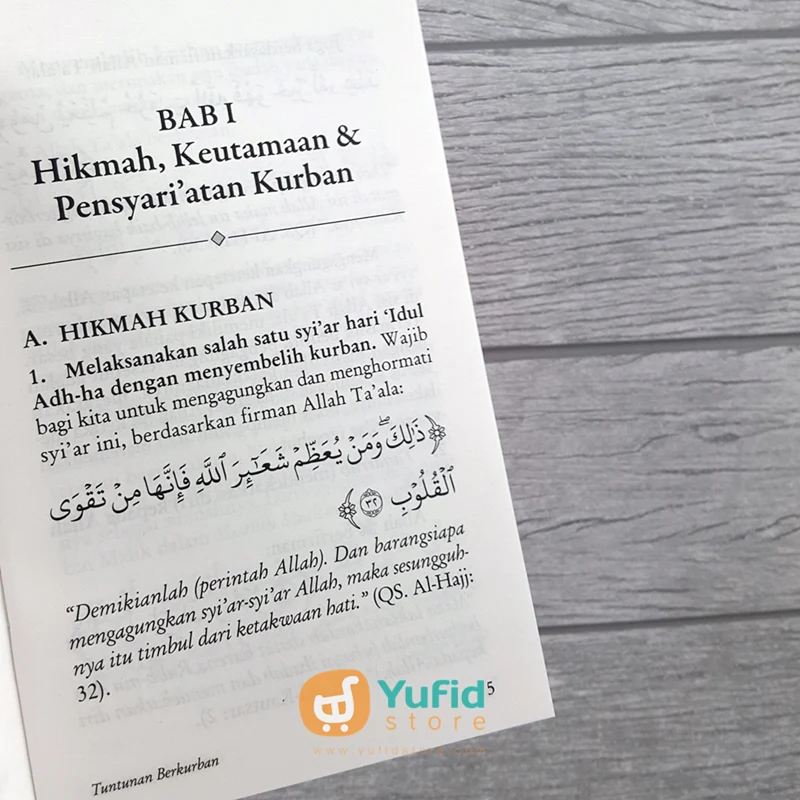 BAB I
Hikmah, Keutamaan &
Pensyari’atan Kurban
A. HIKMAH KURBAN
1. Melaksanakan salah satu syi’ar hari ‘Idul
Adh-ha dengan menyembelih kurban. Wajib
bagi kita untuk mengagungkan dan menghormati
syi’ar ini, berdasarkan firman Allah Ta’ala:
﴿ذَٰلِكَۖ وَمَنْ يُعَظِّمْ شَعَـٰٓئِرَ ٱللَّهِ فَإِنَّهَا مِنْ تَقْوَى
ٱلْقُلُوبِ ٣٢﴾
“Demikianlah (perintah Allah). Dan barangsiapa
mengagungkan syi’ar-syi’ar Allah, maka sesungguh-
nya itu timbul dari ketakwaan hati.” (QS. Al-Hajj:
32).
Yufid
store
www.yufidstore.com
5
Tuntunan Berkurban